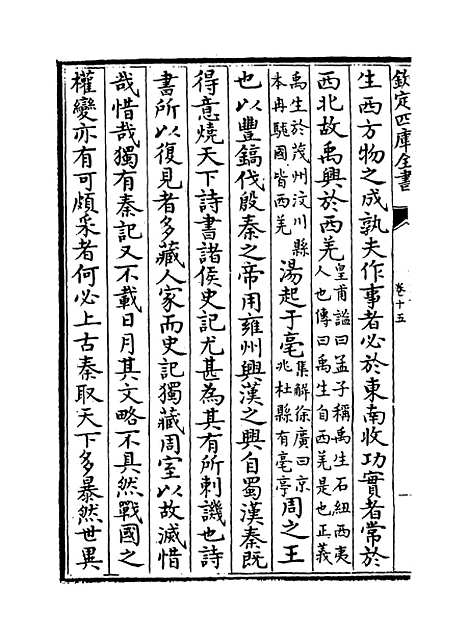 欽定四庫全書
卷十五
生西方物之成孰夫作事者必於東南收功實者常於
西北故禹興於西羌皇甫謐曰孟子稱禹生石紐西夷
人也傳曰禹生自西羌是也正義
禹生於茂州汶川縣
本冉駹國皆西羌湯起于亳集解徐廣曰京
兆杜縣有亳亭周之王
也以豐鎬伐殷秦之帝用雍州興漢之興自蜀漢秦既
得意燒天下詩書諸侯史記尤甚為其有所刺譏也詩
書所以復見者多藏人家而史記獨藏周室以故滅惜
哉惜哉獨有秦記又不載日月其文略不具然戰國之
權變亦有可頗采者何必上古秦取天下多暴然世異